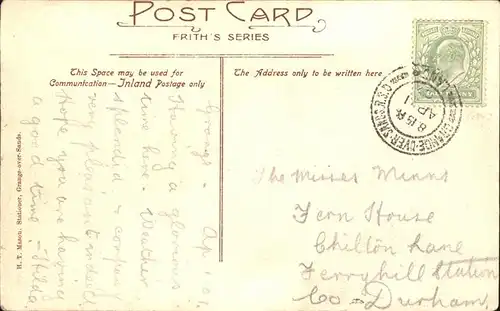 POST CARD
FRITH'S SERIES
This Space may be used for
Communication—Inland Postage only
The Address only to be written here
H. T. Mason, Stationer, Grange-over-Sands.
Grange - Ap. 10.
Having a glorious
time here. Weather
splendid & company
very pleasant indeed.
Hope you are having
a good time - Hilda
GRANGE-OVER-SANDS R.S.O.
8.15 P
AP 11
The Misses Minns
Fern House
Chilton Lane
Ferryhill Station
Co- Durham.